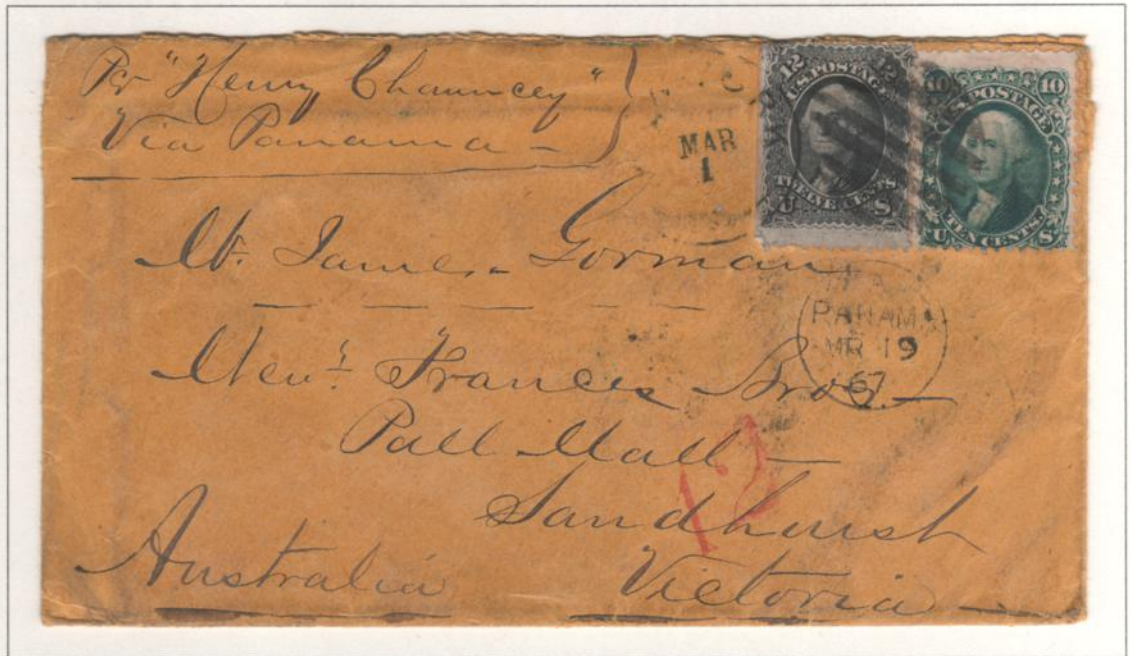 Pr "Henry Chauncey"
Via Panama
MAR
1
12 12
U.S. POSTAGE
TWELVE CENTS
U S
10 10
U.S. POSTAGE
TEN CENTS.
U S
Mr. James Gorman
PANAMA
MR 19
67
Messrs Frances Bros
Pall Mall
12
Sandhurst
Australia Victoria